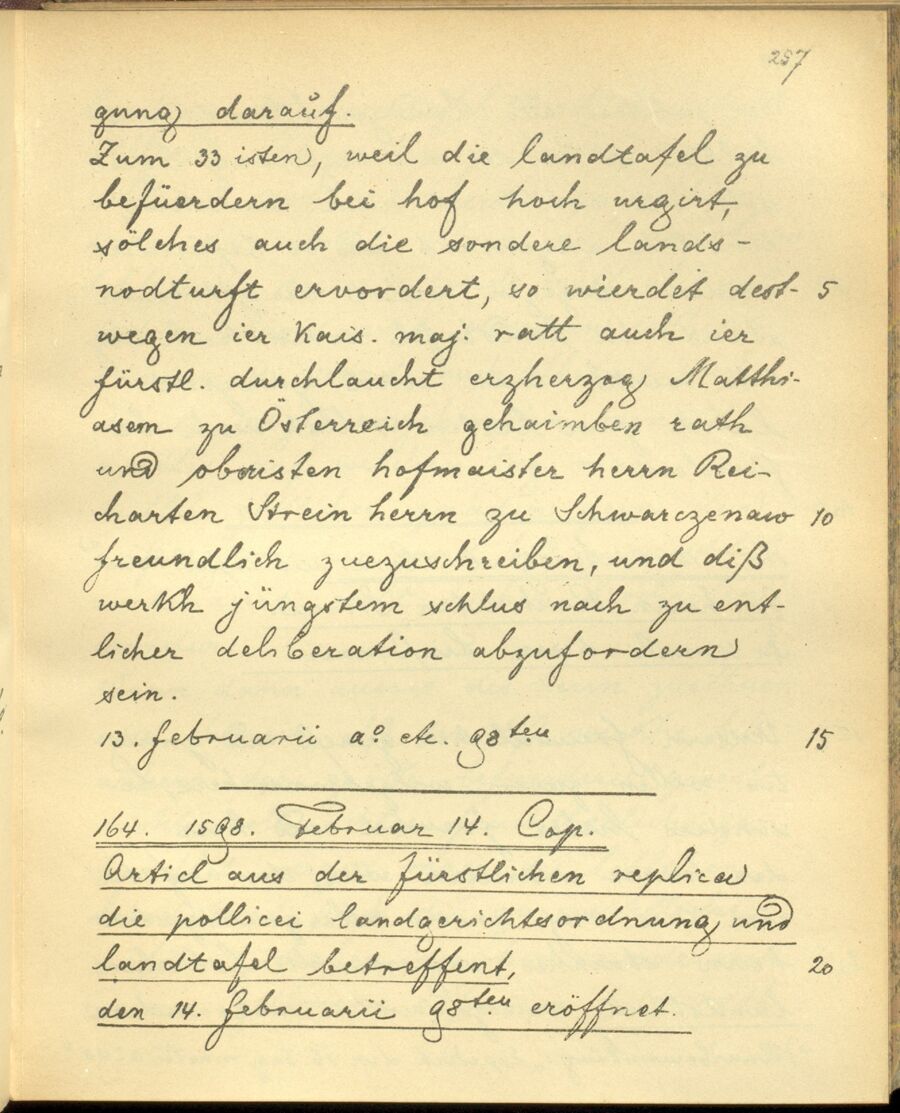 257
gung darauf.
Zum 33 isten, weil die landtafel zu
befüerdern bei hof hoch urgirt,
sölches auch die sondere lands-
nodturft ervordert, so wierdet dest- 5
wegen ier Kais. maj. ratt auch ier
fürstl. durchlaucht erzherzog Matthi-
asem zu Österreich gehaimben rath
und obristen hofmaister herrn Rei-
charten Strein herrn zu Schwarczenaw 10
freundlich zuezuschreiben, und diß
werkh jüngstem schlus nach zu ent-
licher deliberation abzufordern
sein.
13. februarii aᵒ. etc. 98ten 15
164. 1598. Februar 14. Cop.
Articl aus der fürstlichen replica
die pollicei landgerichtsordnung und
landtafel betreffent, 20
den 14. februarii 98ten eröffnet.